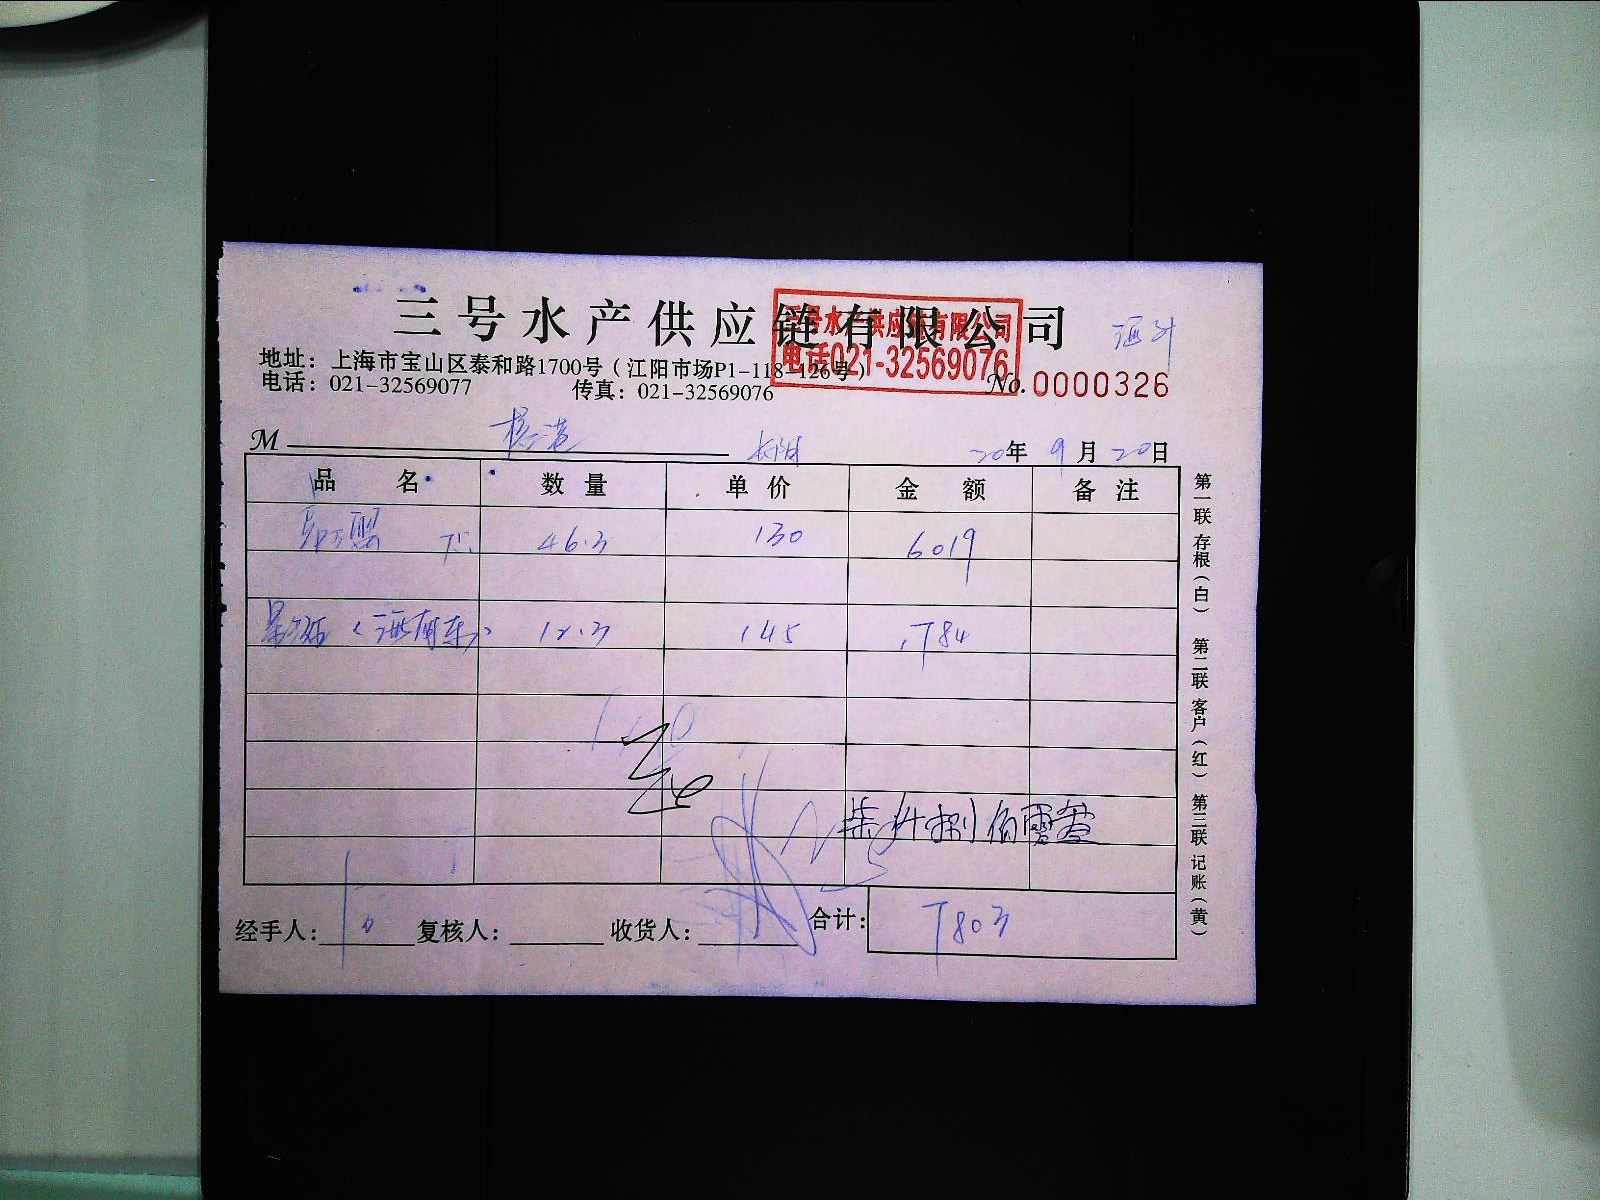 三号水产供应链有限公司
三号水产供应链有限公司
电话021-32569076
地址：上海市宝山区泰和路1700号（江阳市场P1-118-126号）
电话：021-32569077 传真：021-32569076
No. 0000326
M
长阳 20年 9月 20日
品 名 数 量 单 价 金 额 备 注
46.3 130 6019
12.3 145 1784
柒仟捌佰零叁
经手人： 复核人： 收货人： 合计： 7803
第一联 存根（白） 第二联 客户（红） 第三联 记账（黄）